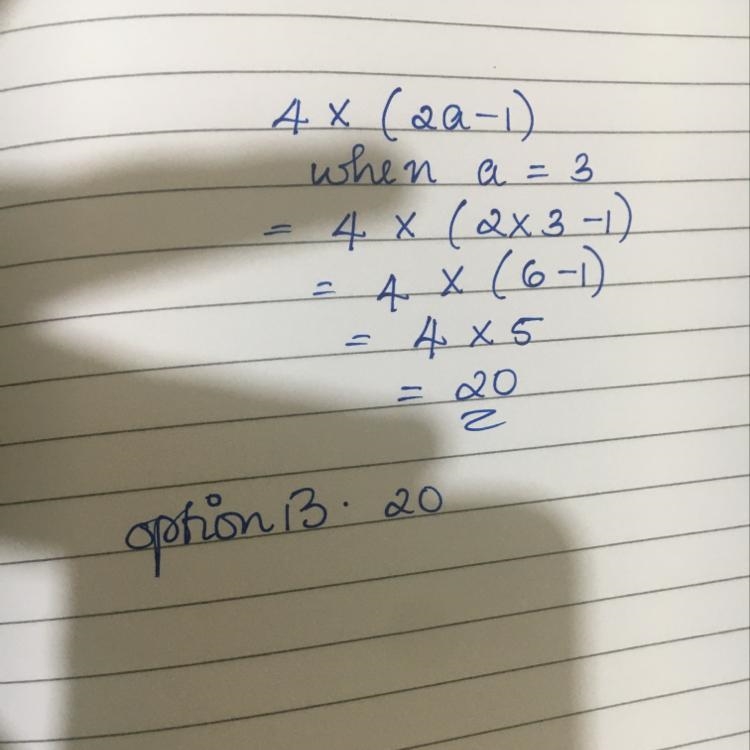 4 × (2a-1)
when a = 3
= 4 × (2×3-1)
= 4 × (6-1)
= 4 × 5
= 20
option B. 20